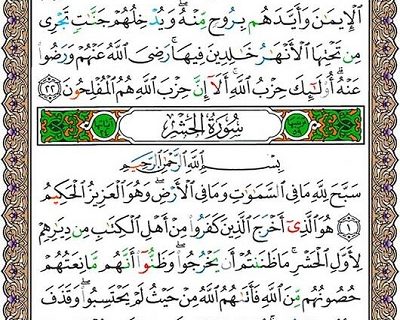 ٱلۡإِيمَٰنَ وَأَيَّدَهُم بِرُوحٖ مِّنۡهُۖ وَيُدۡخِلُهُمۡ جَنَّٰتٖ تَجۡرِي
مِن تَحۡتِهَا ٱلۡأَنۡهَٰرُ خَٰلِدِينَ فِيهَاۚ رَضِيَ ٱللَّهُ عَنۡهُمۡ وَرَضُواْ
عَنۡهُۚ أُوْلَٰٓئِكَ حِزۡبُ ٱللَّهِۚ أَلَآ إِنَّ حِزۡبَ ٱللَّهِ هُمُ ٱلۡمُفۡلِحُونَ ٢٢
سُورَةُ الحَشۡرِ
بِسۡمِ ٱللَّهِ ٱلرَّحۡمَٰنِ ٱلرَّحِيمِ
سَبَّحَ لِلَّهِ مَا فِي ٱلسَّمَٰوَٰتِ وَمَا فِي ٱلۡأَرۡضِۖ وَهُوَ ٱلۡعَزِيزُ ٱلۡحَكِيمُ
١ هُوَ ٱلَّذِيٓ أَخۡرَجَ ٱلَّذِينَ كَفَرُواْ مِنۡ أَهۡلِ ٱلۡكِتَٰبِ مِن دِيَٰرِهِمۡ
لِأَوَّلِ ٱلۡحَشۡرِۚ مَا ظَنَنتُمۡ أَن يَخۡرُجُواْۖ وَظَنُّوٓاْ أَنَّهُم مَّانِعَتُهُمۡ
حُصُونُهُم مِّنَ ٱللَّهِ فَأَتَىٰهُمُ ٱللَّهُ مِنۡ حَيۡثُ لَمۡ يَحۡتَسِبُواْۖ وَقَذَفَ